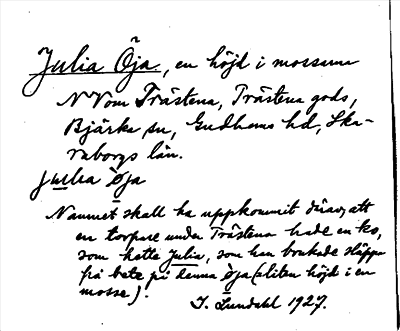 Julia Öja, en höjd i mossarna
NV om Trästena, Trästena gods,
Bjärka sn, Gudhems hd, Ska-
raborgs län.
julia öja
Namnet skall ha uppkommit därav, att
en torpare under Trästena hade en ko,
som hette Julia, som han brukade släppa
på bete på denna öja (= liten höjd i en
mosse).
I. Lundahl 1927.